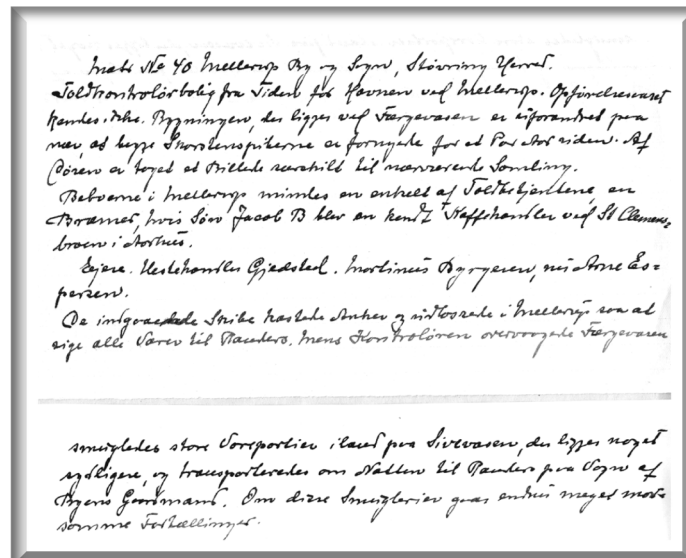 Matr № 40 Mellerup By og Sogn, Støvring Herred.
Toldkontrolørbolig fra Tiden før Havnen ved Mellerup. Opførelsesaaret
kendes ikke. Bygningen, der ligger ved Færgevasen er uforandret paa
nær, at begge Skorstenspiberne er fornyede for et Par Aar siden. Af
Døren er taget et Billede særskilt til nærværende Samling.
Beboerne i Mellerup mindes en enkelt af Toldbetjentene, en
Bræmer, hvis Søn Jacob B blev en kendt Kaffehandler ved St Clemens-
broen i Aarhus.
Ejere. Hestehandler Gjedsted. Martinus Byrgesen, nu Arne Es=
persen.
De indgaaende Skibe kastede Anker og udlossede i Mellerup saa at
sige alle Varer til Randers. Mens Kontroløren overvaagede Færgevasen
smugledes store Varepartier iland paa Sivevasen, der ligger noget
sydligere, og transporteredes om Natten til Randers paa Vogn af
Byens Gaardmænd. Om disse Smuglerier gaar endnu meget mor=
somme Fortællinger.